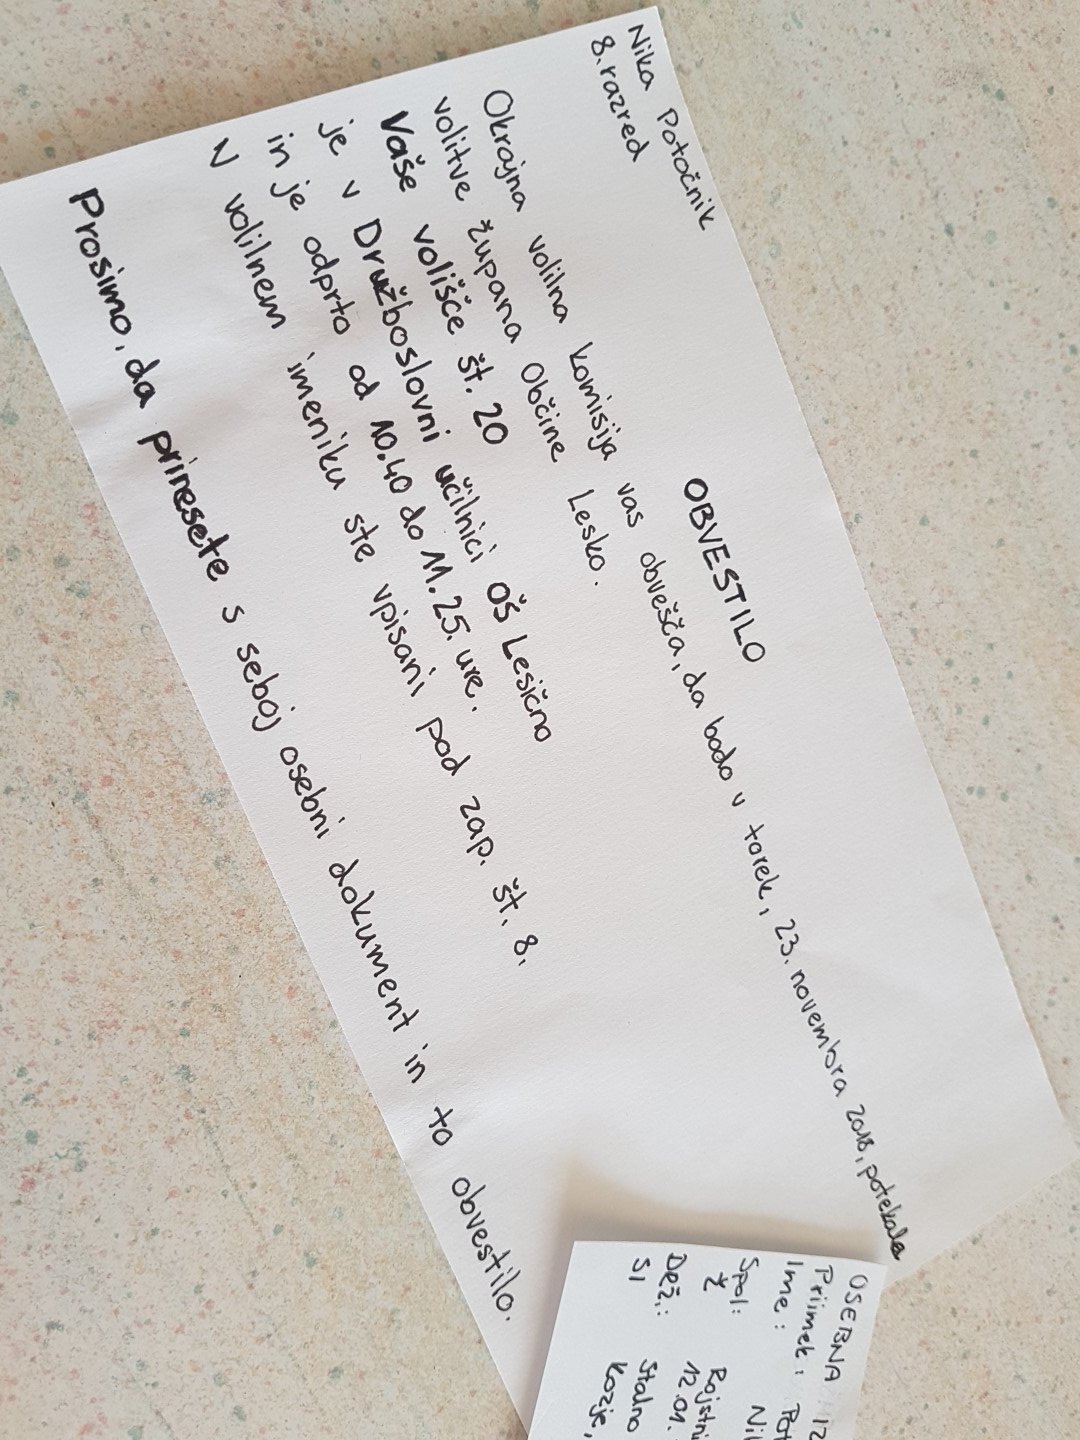 Nika Potočnik
8. razred
OBVESTILO
Okrajna volilna komisija vas obvešča, da bodo v torek, 23. novembra 2018, potekale
volitve župana Občine Lesko.
Vaše volišče št. 20
je v Družboslovni učilnici OŠ Lesično
in je odprto od 10.40 do 11.25. ure.
V volilnem imeniku ste vpisani pod zap. št. 8.
Prosimo, da prinesete s seboj osebni dokument in to obvestilo.
OSEBNA IZ
Priimek: Pot
Ime: Nik
Spol: Rojstni
Ž 12.01.
Drž.: Stalno
SI Kozje,